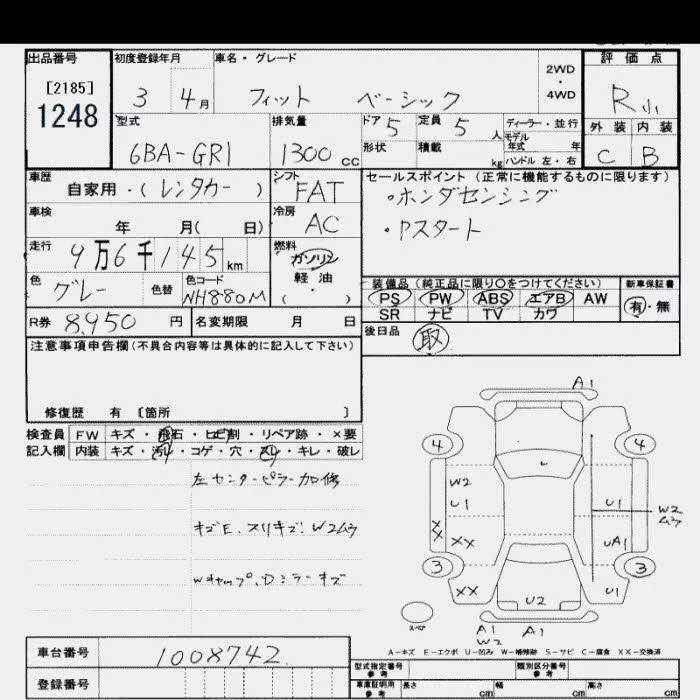 出品番号 初度登録年月 車名・グレード 評価点
[2185] 2WD
1248 3 4月 フィット ベーシック ・ R小
4WD
型式 排気量 ドア 定員 ディーラー・並行 外装 内装
6BA-GR1 1300cc 5 5人 モデル年式 年 C B
形状 積載 kg ハンドル 左・右
車歴 自家用・(レンタカー) シフト FAT セールスポイント (正常に機能するものに限ります)
・ホンダセンシング
車検 年 月( 日) 冷房 AC ・Pスタート
走行 9万6千145km 燃料 ガソリン
軽・油
( )
色 グレー 色替 色コード NH880M
装備品(純正品に限り〇をつけてください) 新車保証書
PS PW ABS エアB AW 有・無
SR ナビ TV カワ
R券 8,950円 名変期限 月 日 後日品 取
注意事項申告欄(不具合内容等は具体的に記入して下さい)
修復歴 有 〔箇所 〕
検査員 FW キズ・飛石・ヒビ割・リペア跡・×要
記入欄 内装 キズ・汚れ・コゲ・穴・スレ・キレ・破レ
左センターピラー加修
キズE、スリキズ、W2ムラ
Wキャップ、Dミラーキズ
A1
4 4
W2
U1 U1 W2
ムラ
XX
XX UA1
3 3
XX U1
U2
スペア A1 A1
W2
A-キズ E-エクボ U-凹み W-補修跡 S-サビ C-腐食 XX-交換済
車台番号 1008742 型式指定番号 参考 類別区分番号 参考
登録番号 車庫証明用 参考 長さ cm 幅 cm 高さ cm